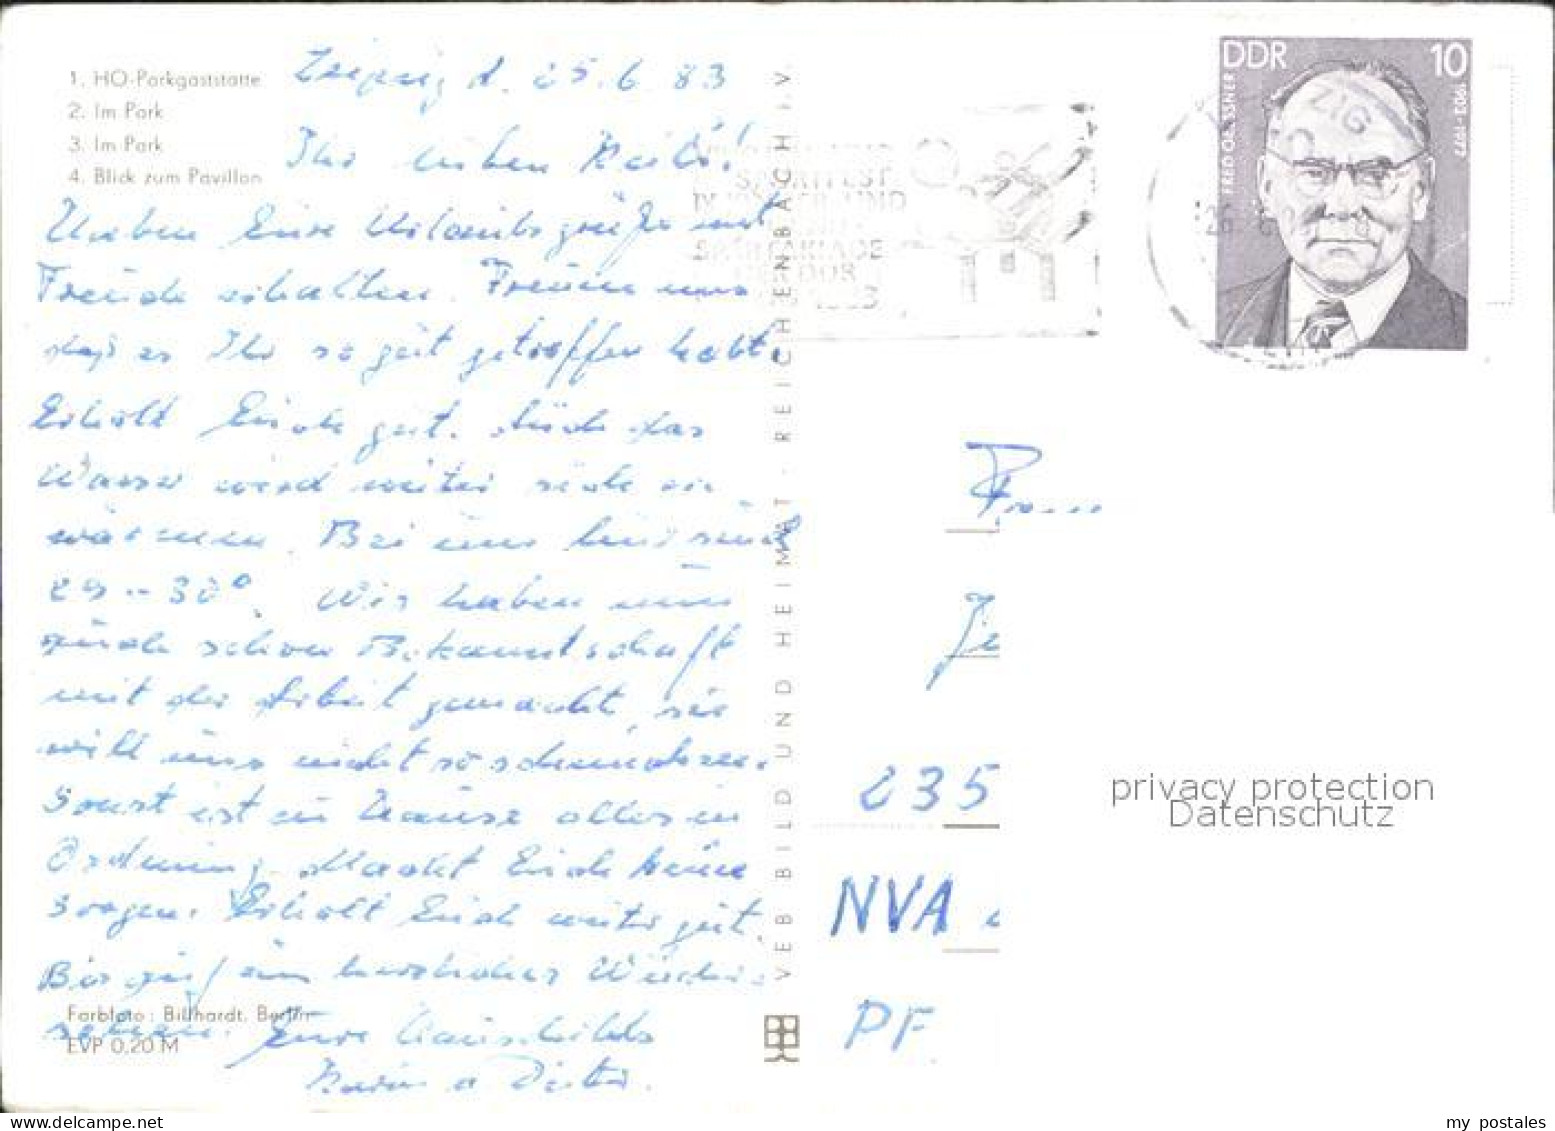 1. HO-Parkgaststätte
2. Im Park
3. Im Park
4. Blick zum Pavillon
Leipzig d. 25.6.83
Ihr lieben
Haben Eure Urlaubsgrüße mit
Freude erhalten. Freuen uns
daß es Ihr so gut getroffen habt.
Erholt Euch gut. Auch das
Wasser wird weiter sich er
wärmen. Bei uns sind
29 - 30°. Wir haben uns
auch schon Bekanntschaft
mit der Arbeit gemacht, sie
will uns nicht so schmecken.
Sonst ist zu Hause alles in
Ordnung. Macht Euch keine
Sorgen. Erholt Euch weiter gut.
Bis auf ein herzliches Wieder-
sehen. Eure
Karin u Dieter.
Farbfoto: Billhardt, Berlin
EVP 0,20 M
VEB BILD UND HEIMAT REICHENBACH I. V.
SPARTAKIADE
DER DDR
DDR 10
FRED OELSSNER
1903-1977
Fam
235
NVA
PF
privacy protection
Datenschutz
my postales